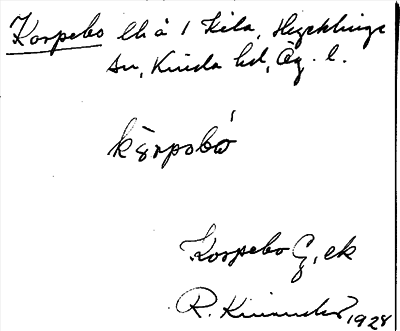 Korpebo lh å 1 Kila, Hycklinge
sn, Kinda hd, Ög. l.
kȯrpobò
Korpebo G, ek
R. 1928